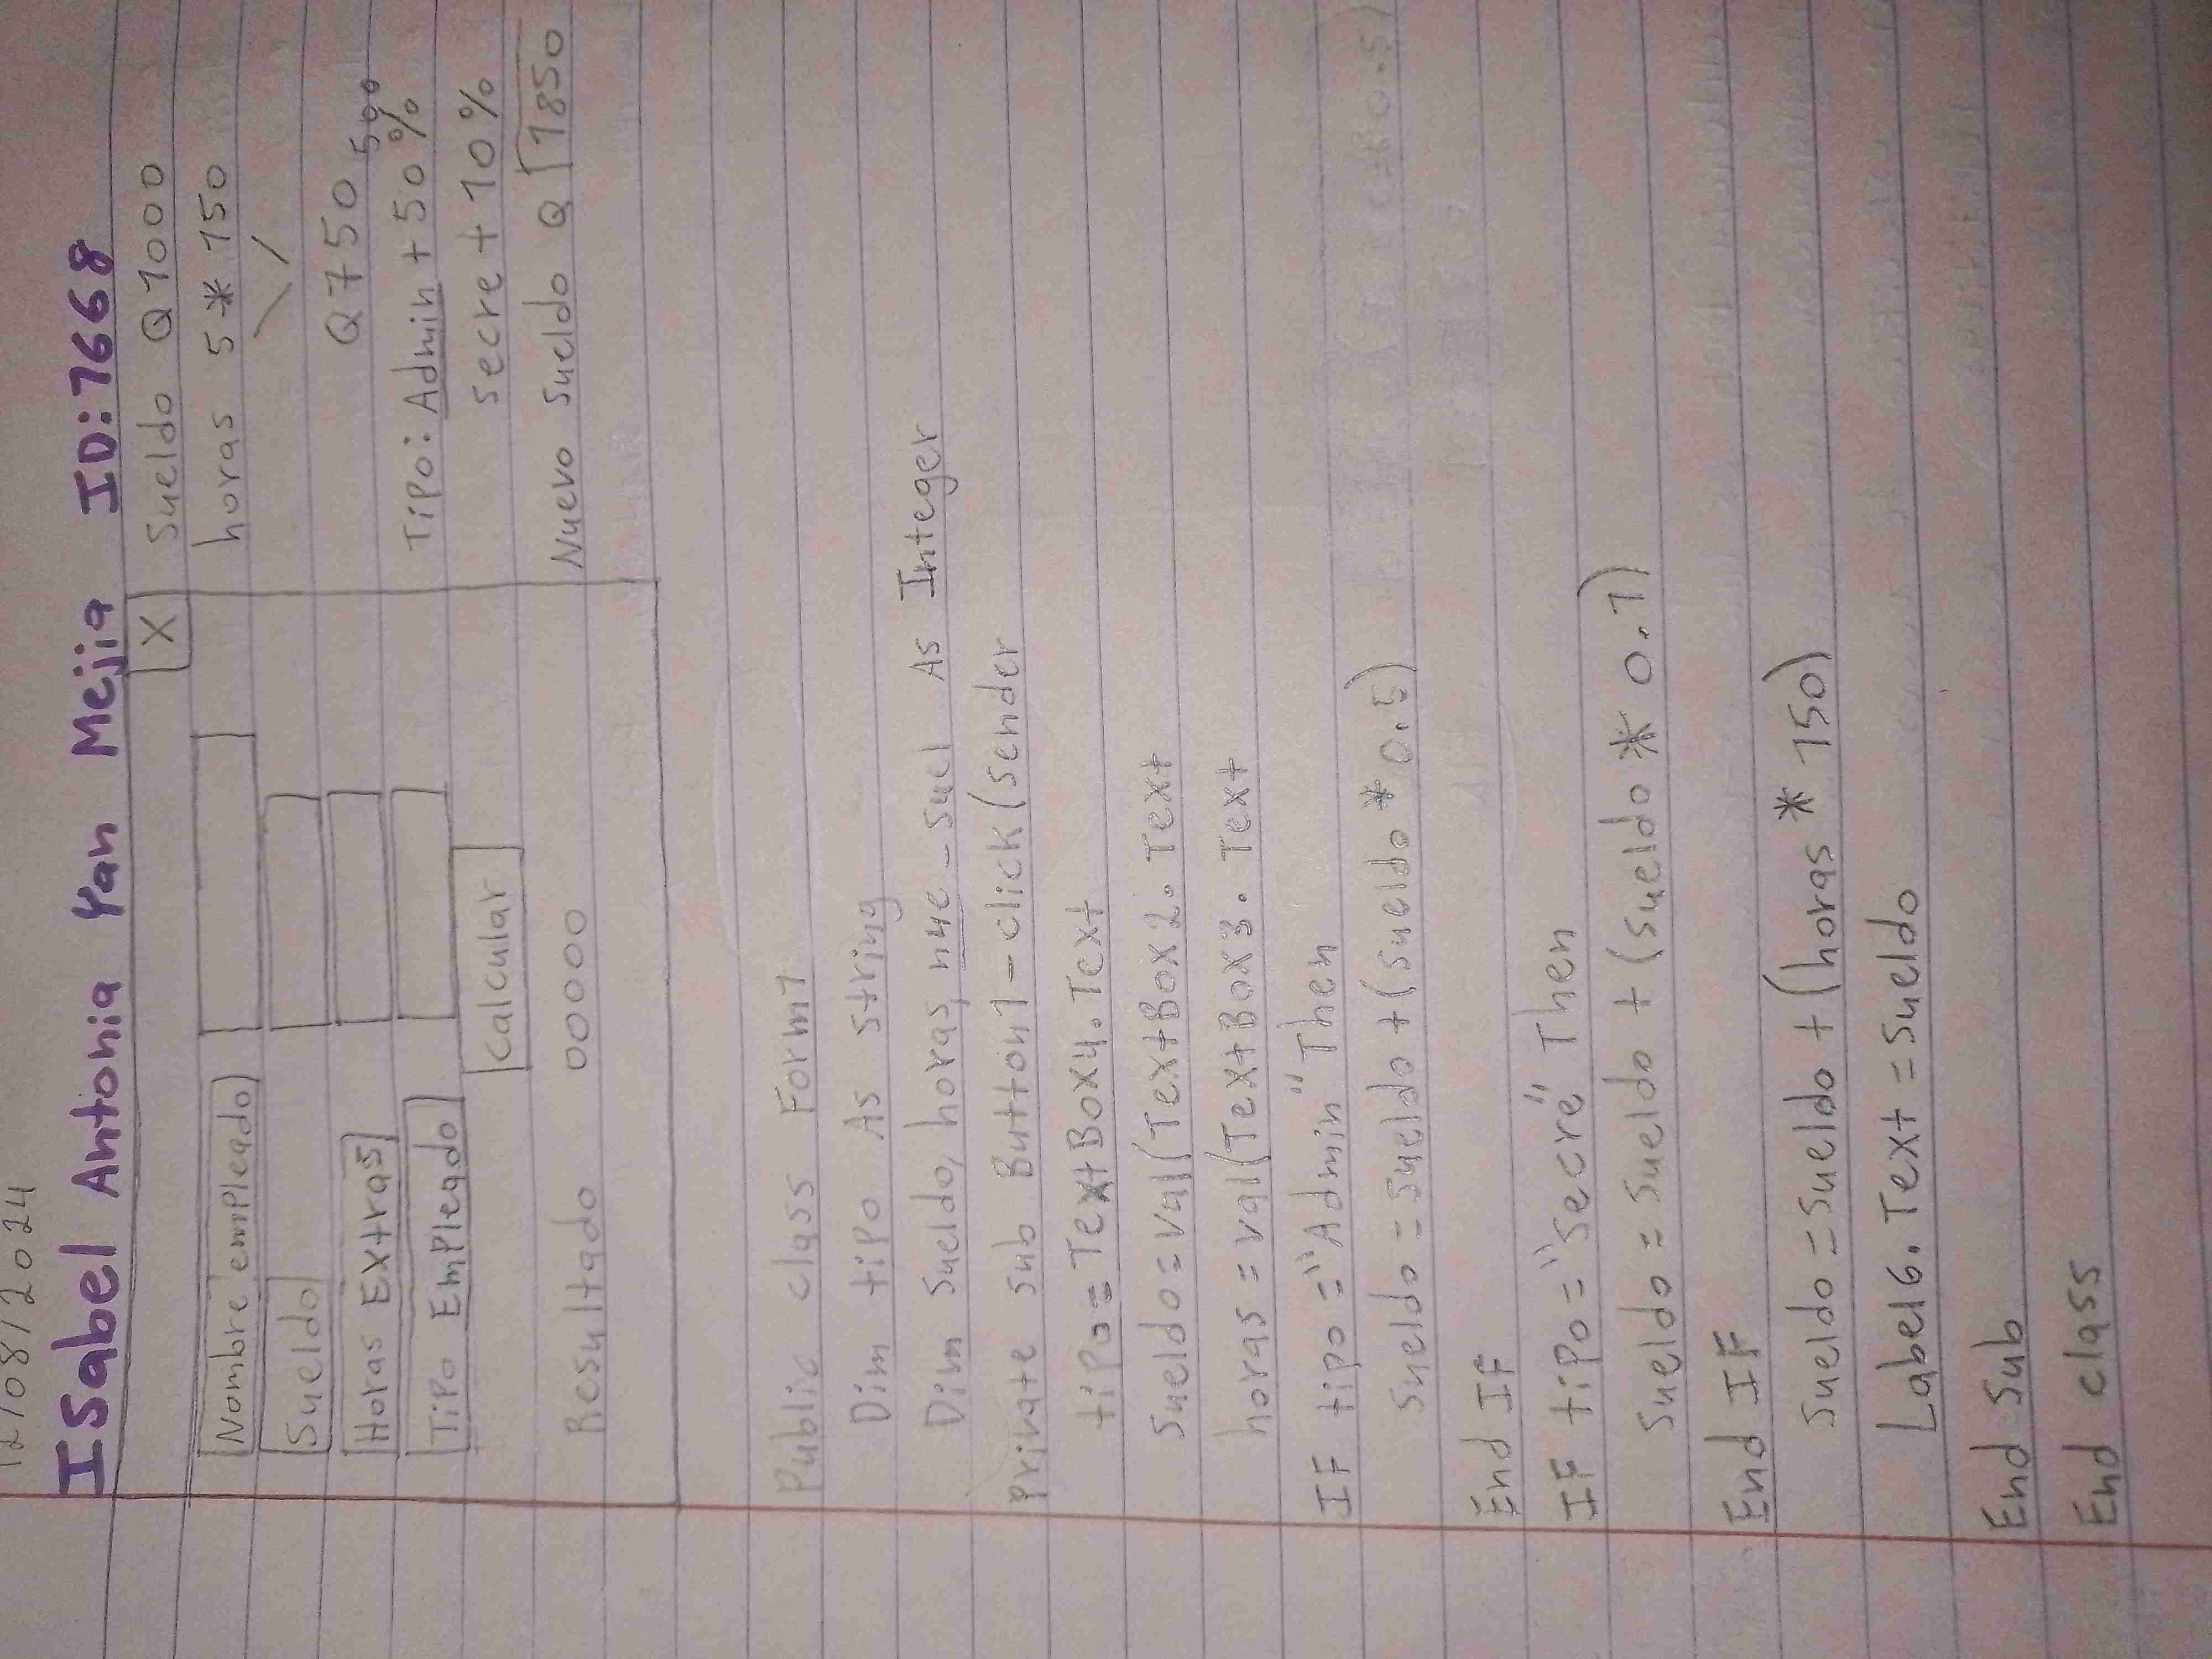 12/08/2024
Isabel Antonia Yan Mejia ID:7668
X
Nombre empleado
Sueldo
Horas Extras
Tipo Empleado
Calcular
Resultado 00000
Sueldo Q 1000
horas 5 * 150
Q 750
500
Tipo: Admin + 50%
secre + 10%
Nuevo sueldo Q 1850
Public class Form1
Dim tipo As string
Dim Sueldo, horas, nue_suel As Integer
Private sub Button1_click(sender
tipo = TextBox4.Text
sueldo = val(TextBox2.Text
horas = val(TextBox3.Text
IF tipo = "Admin" Then
sueldo = sueldo + (sueldo * 0.5)
End IF
IF tipo = "secre" Then
sueldo = sueldo + (sueldo * 0.1)
End IF
sueldo = sueldo + (horas * 150)
Label6.Text = sueldo
End Sub
End class